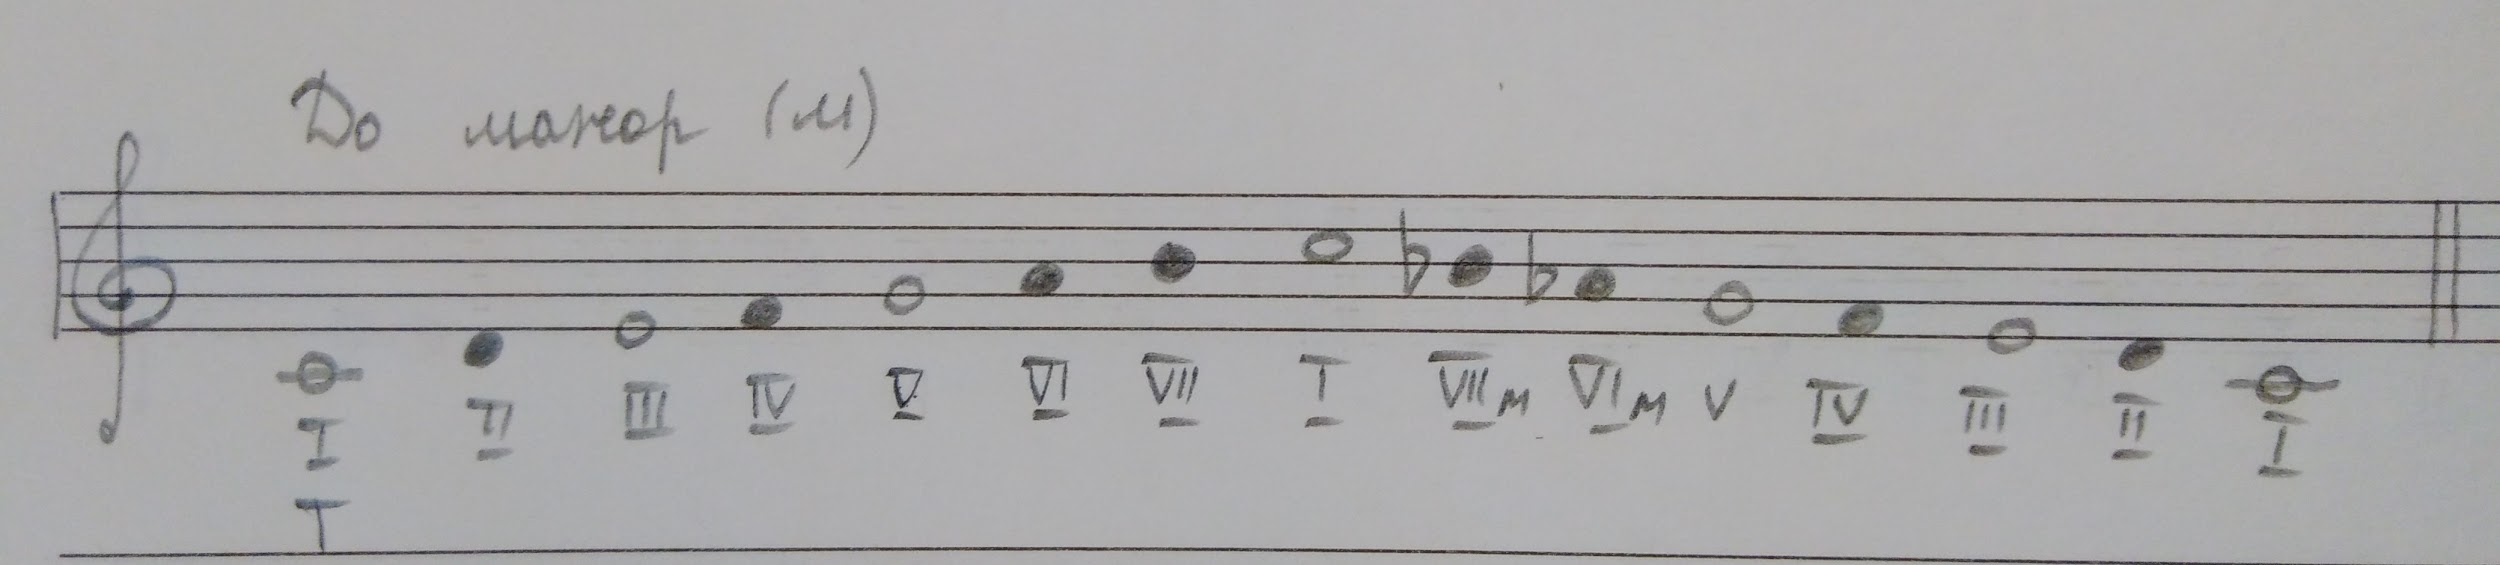 До мажор (м)
I II III IV V VI VII I VIIм VIм V IV III II I
T